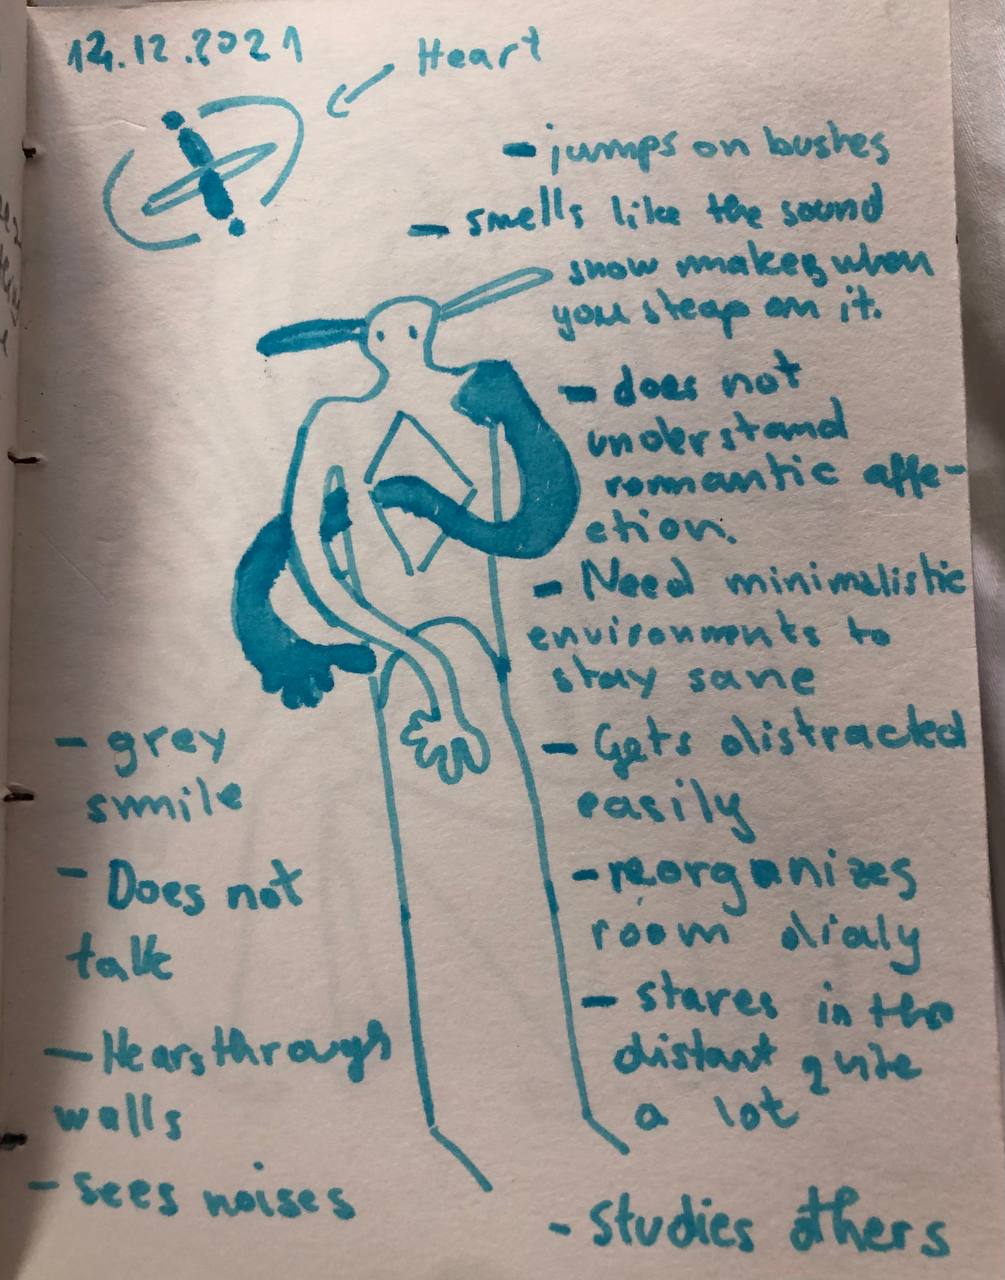 14.12.2021
Heart
- jumps on bushes
- smells like the sound
snow makes when
you steap on it.
- does not
understand
romantic affe-
ction.
- Need minimalistic
environments to
stay sane
- Gets distracked
easily
- reorganizes
room dialy
- stares in the
distant quite
a lot
- studies others
- grey
smile
- Does not
talk
- Hears through
walls
- sees noises